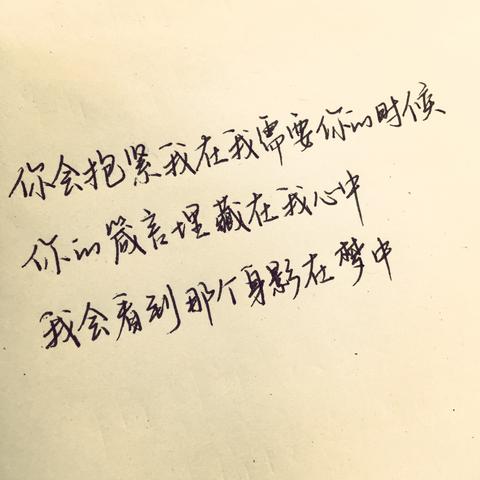 你会抱紧我在我需要你的时候
你的箴言埋藏在我心中
我会看到那个身影在梦中